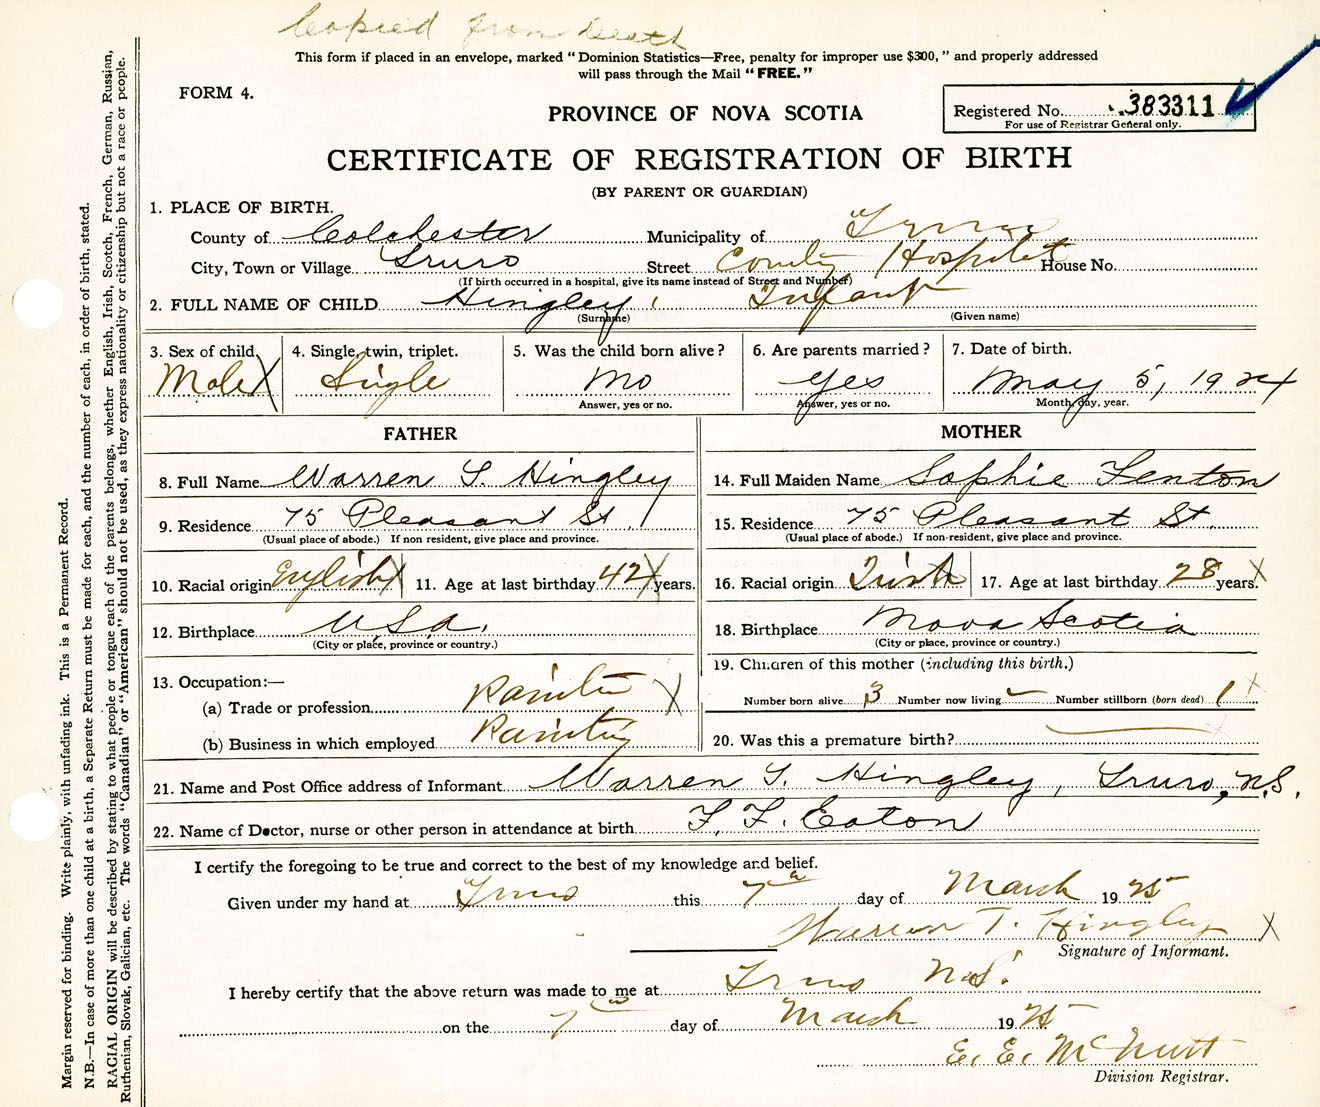 Copied from Death
This form if placed in an envelope, marked "Dominion Statistics—Free, penalty for improper use $300," and properly addressed
will pass through the Mail "FREE."
FORM 4.
PROVINCE OF NOVA SCOTIA
Registered No. 383311
For use of Registrar General only.
CERTIFICATE OF REGISTRATION OF BIRTH
(BY PARENT OR GUARDIAN)
1. PLACE OF BIRTH.
County of Colchester Municipality of Truro
City, Town or Village Truro Street County Hospital House No.
(If birth occurred in a hospital, give its name instead of Street and Number)
2. FULL NAME OF CHILD Hingley, Infant
(Surname) (Given name)
3. Sex of child. 4. Single, twin, triplet. 5. Was the child born alive? 6. Are parents married? 7. Date of birth.
Male X Single No Yes May 5, 1924
Answer, yes or no. Answer, yes or no. Month, day, year.
FATHER MOTHER
8. Full Name Warren T. Hingley 14. Full Maiden Name Sophie Fenton
9. Residence 75 Pleasant St. 15. Residence 75 Pleasant St.
(Usual place of abode.) If non resident, give place and province. (Usual place of abode.) If non-resident, give place and province.
10. Racial origin English X 11. Age at last birthday 42 X years. 16. Racial origin Irish X 17. Age at last birthday 28 years. X
12. Birthplace U.S.A. 18. Birthplace Nova Scotia
(City or place, province or country.) (City or place, province or country.)
13. Occupation:— 19. Children of this mother (including this birth.)
(a) Trade or profession Painter X Number born alive 3 Number now living Number stillborn (born dead) 1 X
(b) Business in which employed Painting 20. Was this a premature birth?
21. Name and Post Office address of Informant Warren T. Hingley, Truro, N.S.
22. Name of Doctor, nurse or other person in attendance at birth F. F. Eaton
I certify the foregoing to be true and correct to the best of my knowledge and belief.
Given under my hand at Truro this 7th day of March 1925
Warren T. Hingley X
Signature of Informant.
I hereby certify that the above return was made to me at Truro N.S.
on the 7th day of March 1925
E. E. McNutt
Division Registrar.
Margin reserved for binding. Write plainly, with unfading ink. This is a Permanent Record.
N.B.—In case of more than one child at a birth, a Separate Return must be made for each, and the number of each, in order of birth, stated.
RACIAL ORIGIN will be described by stating to what people or tongue each of the parents belongs, whether English, Irish, Scotch, French, German, Russian,
Ruthenian, Slovak, Galician, etc. The words "Canadian" or "American" should not be used, as they express nationality or citizenship but not a race or people.